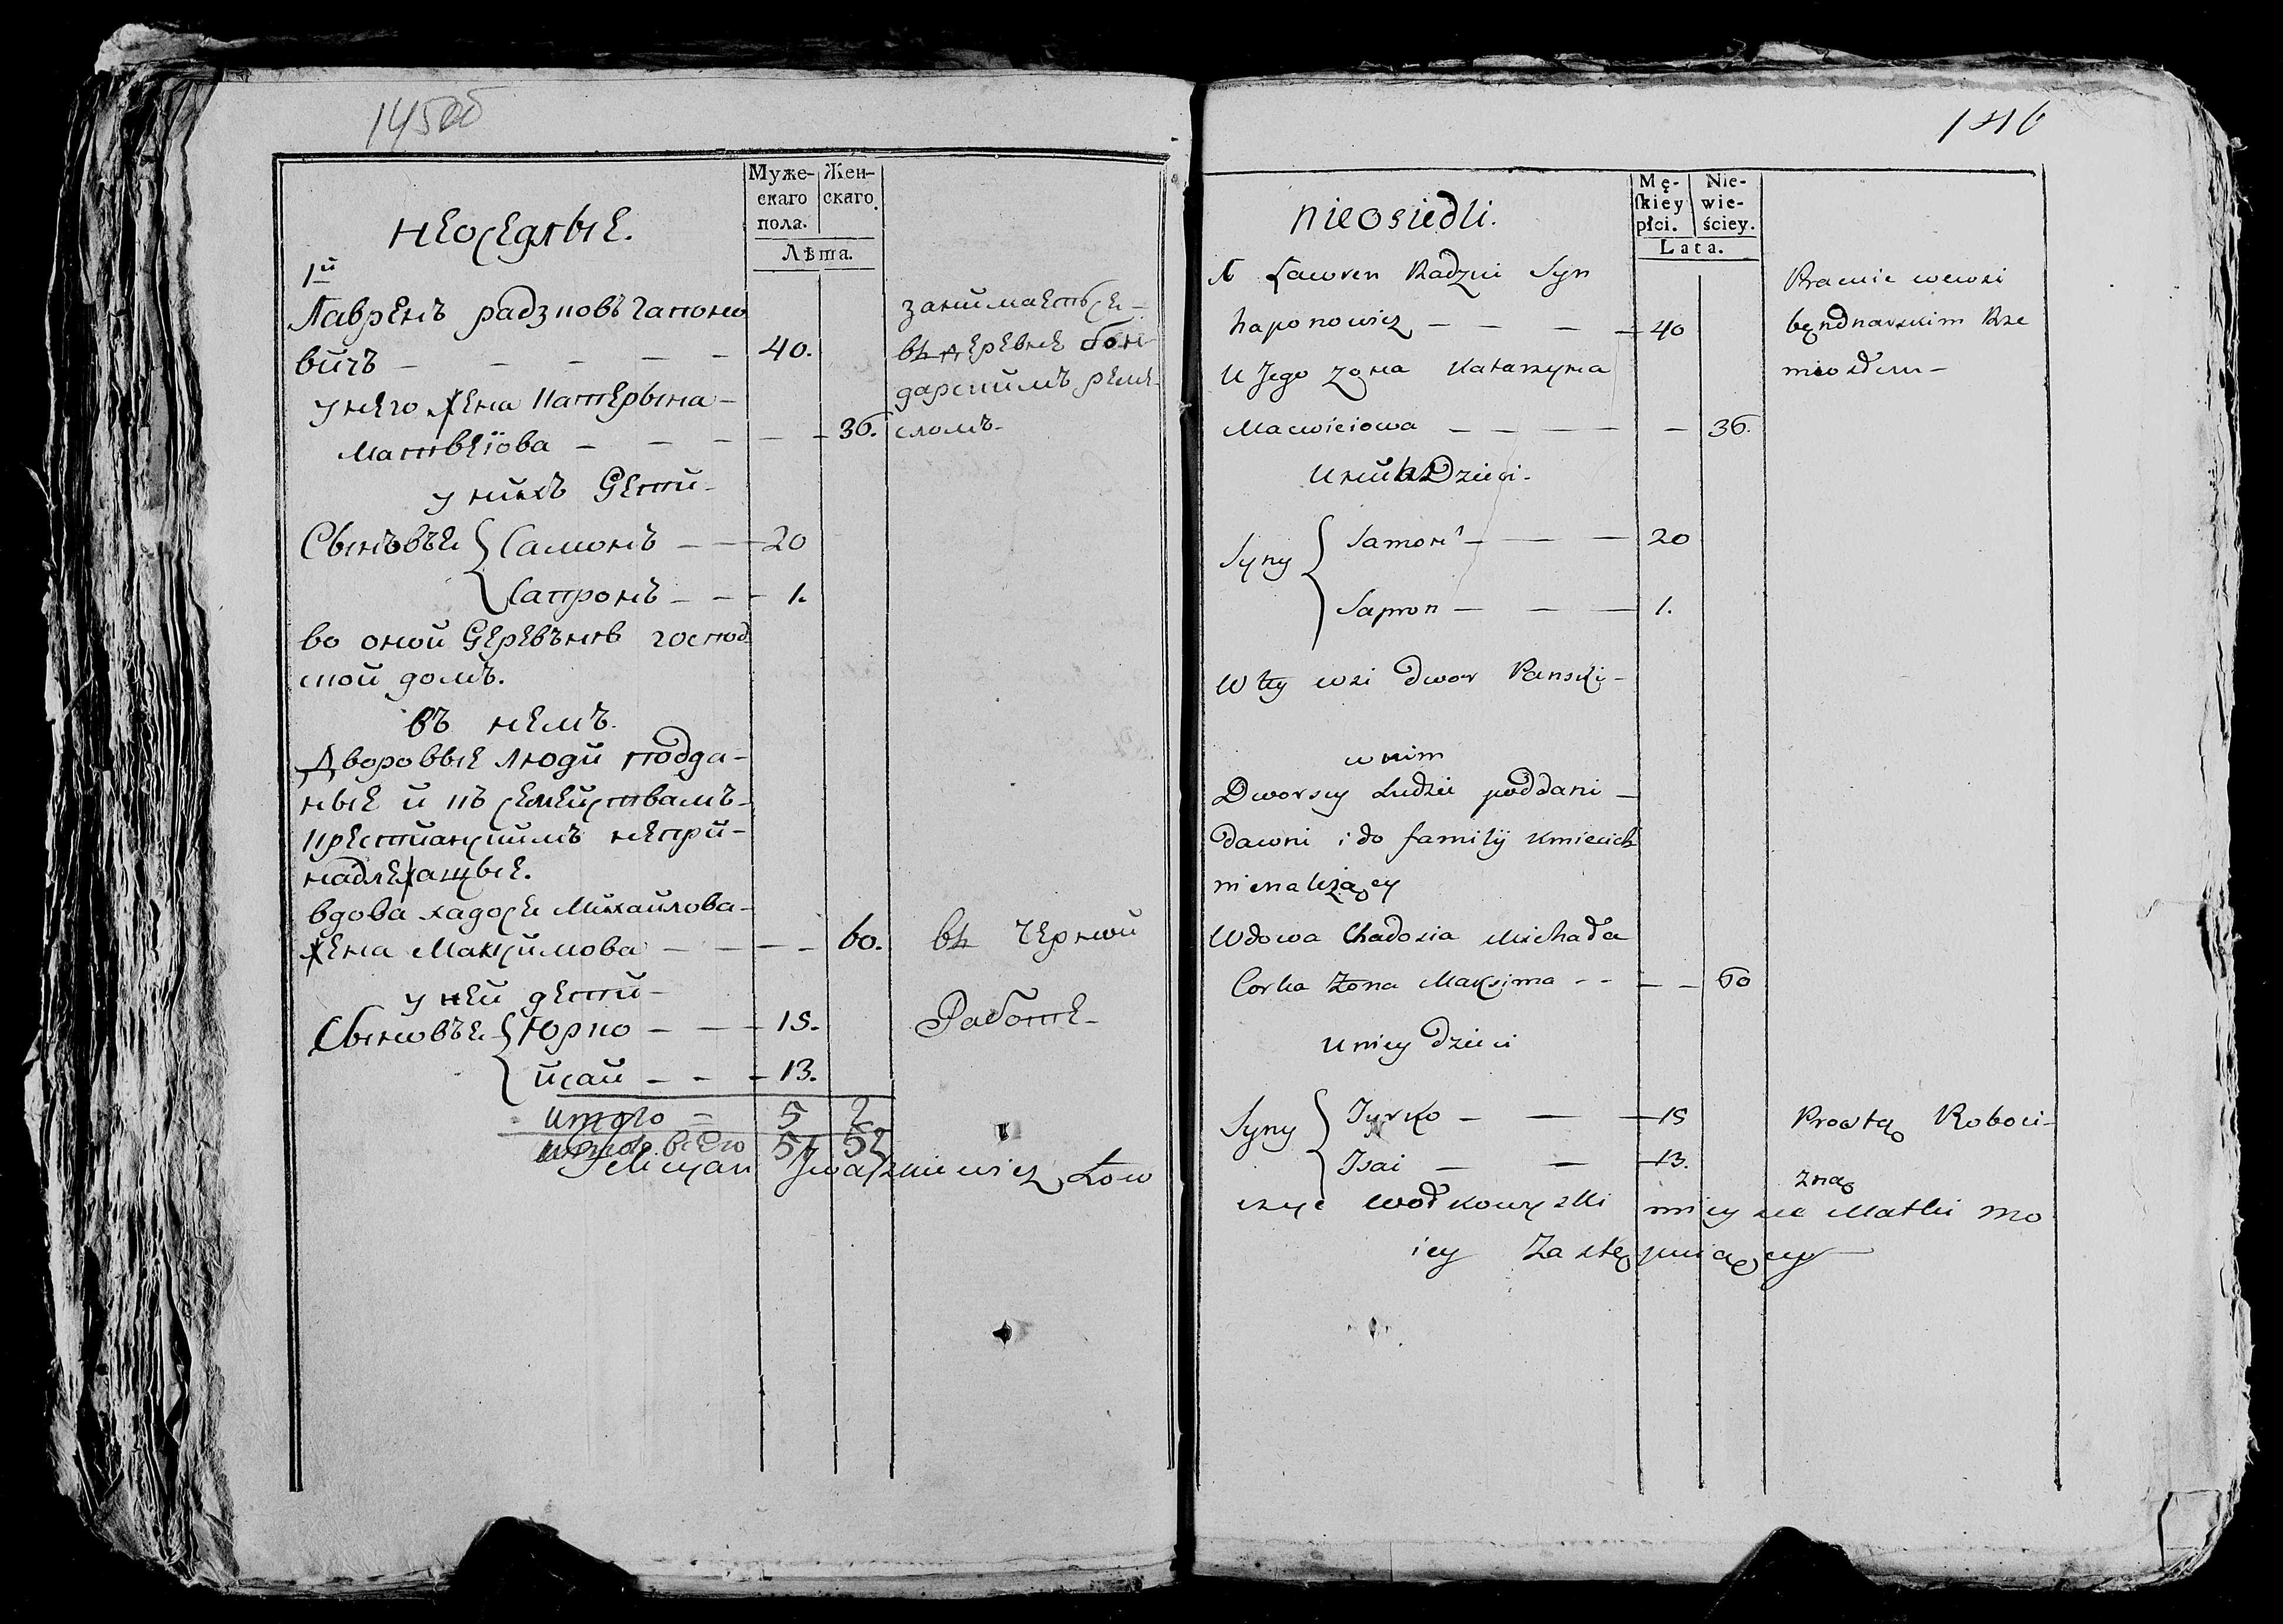 145об
Муже-
скаго
пола.
Жен-
скаго.
Лѣта.
неоседлые.
1й
Лавренъ радзковъ гапоно
вичъ — — — — 40.
занимаетьсе
въ деревне бон
дарскимъ реме-
сломъ-
у него жена Катерына-
Матвеіова — — — — 36.
у нихъ дети-
Сынъвъе { Самонъ — — 20
Сапронъ — — 1.
во оной деревънѣ господ
ской домъ.
въ немъ.
Дворовые люди подда-
ные и къ семействамъ-
крестианскимъ непри-
надлежащые.
вдова хадосе Михайлова-
жена Максимова — — — 60.
въ черной
у ней дети-
Работе-
Сыновъе { Юрко — — 15.
исай — — 13.
итого — 5 2
всего 57 52
146
Mę-
skiey
płci.
Nie-
wie-
ściey.
Lata.
nieosiedli.
Ławren Radzki Syn
haponowicz — — — 40
Pracuie wewsi
bęndnarskim Rze
miosłem-
U Jego zona Katarzyna
Macwieiowa — — — — 36.
U nich Dzieci-
Syny { Samon — — 20
Sapron — — 1.
W tey wsi dwor Panski-
w nim
Dworscy Ludzie poddani —
dawni i do familij kmiecich
nienależący
Wdowa Chadosia Michała
Corka Zona Maksima - - — — 60
U niey dzieci
Syny { Jurko — — 15
Isai — — 13.
Prostą Roboci-
zną
Iwaszkiewicz Łow
czyc Wołkowyski mieysce Matki mo
iey Zastępuiący